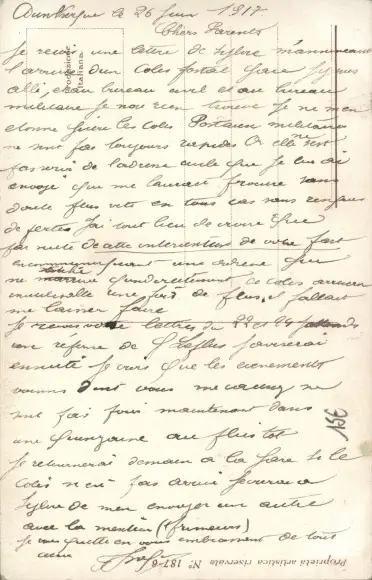 Dunkerque le 26 juin 1917.
Chers Parents
Je reçois une lettre de Sylvie m'annonçant
l'arrivée d'un colis postal gare j'y suis
allé, et au bureau civil et au bureau
militaire je nai rien trouvé je ne m'en
etonne guère les colis Postaux militaires
ne sont pas toujours rapides Or elle ne s'est
pas servi de l'adresse civile que je lui ai
envoyé qui me l'aurait sans
doute plus vite en tout cas sans risques
de pertes j'ai tout lieu de croire que
par suite de cette intervention de votre part
en communiquant une adresse qui
ne qu'indirectement ce colis arrivera
une fois de plus, il fallait
me laisser faire
Je reçois votre lettre du 22 et 24
une réponse de j'aviserai
ensuite Je crois que les evenements
dont vous me causez ne
sont pas finis maintenant dans
une quinzaine au plus tot
je retournerai demain à la gare si le
colis n'est pas arrivé j'écrirai à
Sylvie de m'en envoyer un autre
avec la mention (primeurs)
je vous quitte en vous embrassant de tout
cœur
15€
Corrispondenza
Italiana
Proprietà artistica riservata No 187-6